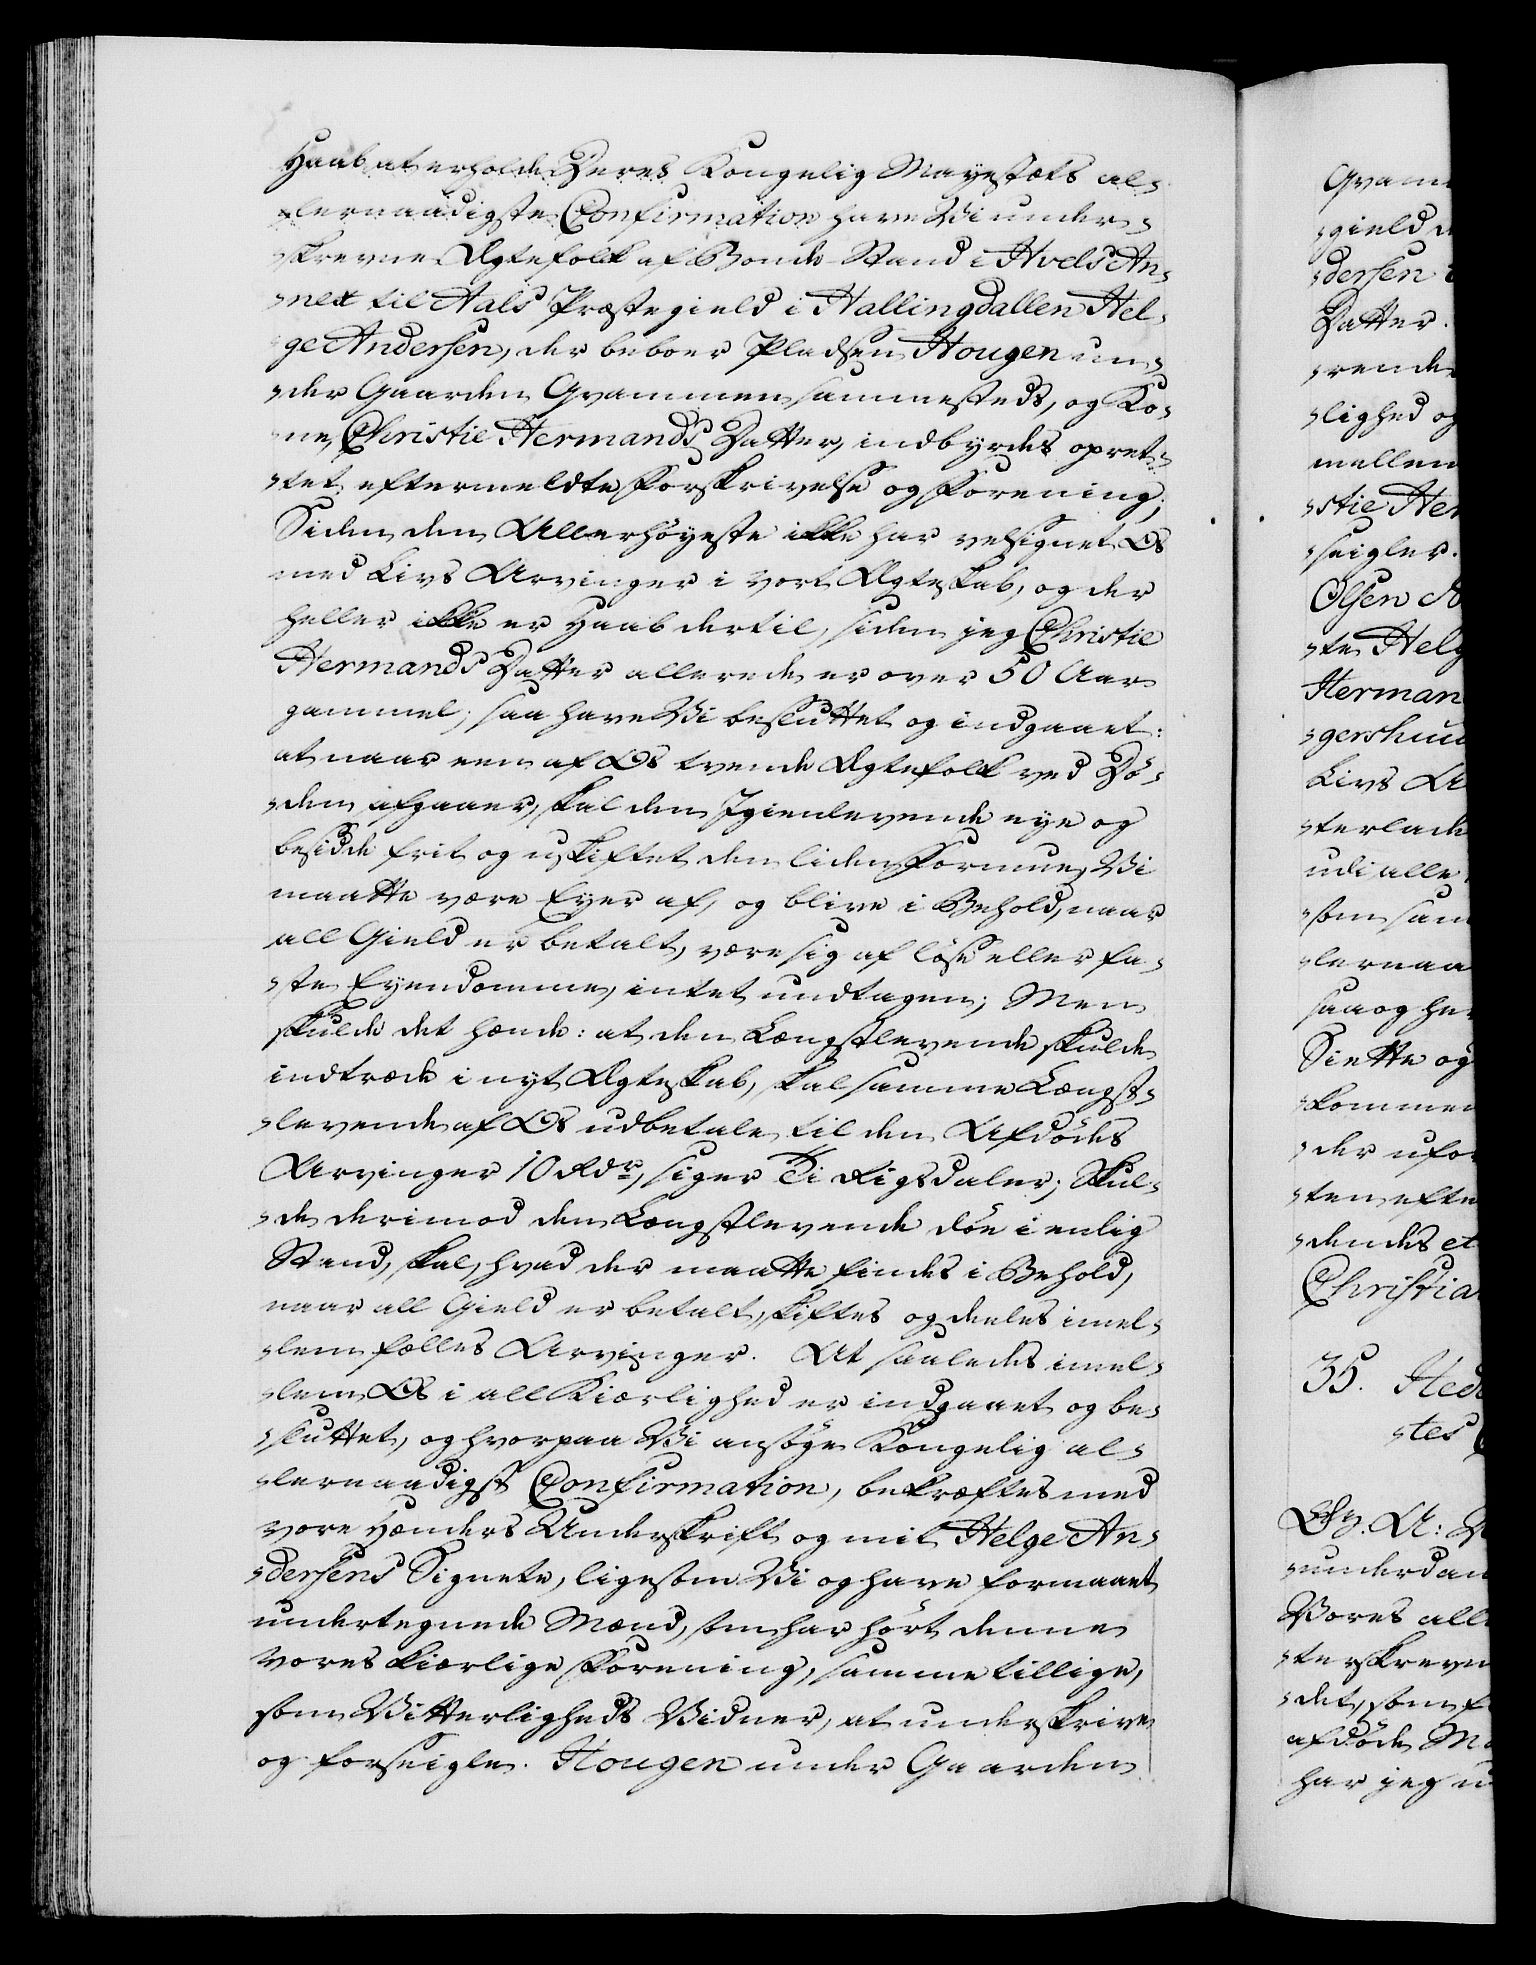 Haab at erholde Deres Kongelig Mayestæts al-
-lernaadigste Confirmation have Vi under-
-skrevne Ægtefolk af Bonde-Stand i Hvels An-
-nex til Aals Præstegield i Hallingdallen Hel-
-ge Andersen, der beboer Pladsen Hougen un-
-der Gaarden Gvammen sammesteds, og Ko-
-ne, Christie Hermands Datter, indbyrdes opret-
-tet eftermeldte Forskrivelse og Forening;
Siden den Allerhöyeste ikke har velsignet Os
med Livs Arvinger i vort Ægteskab, og der
heller ikke er Haab dertil, siden jeg Christie
Hermands Datter allerede er over 50 Aar
gammel; saa have Vi besluttet og indgaaet:
at naar een af Os tvende Ægtefolk ved Dö-
-den afgaaer, skal den Igienlevende eye og
besidde frit og uskiftet den liden Formue, Vi
maatte være Eyer af, og blive i Behold, naar
all Gield er betalt, være sig af löse eller fa-
-ste Eyendomme, intet undtagen; Men
skulde det hænde: at den Længstlevende skulde
indtræde i nyt Ægteskab, skal samme Længst-
-levende af Os udbetale til den Afdödes
Arvinger 10 Rdr, siger Ti Rigsdaler; Skul-
-de derimod den Længstlevende döe i enlig
Stand, skal, hvad der maatte findes i Behold,
naar all Gield er betalt, skiftes og deeles imel-
-lem fælles Arvinger. At saaledes imel-
-lem Os i all Kiærlighed er indgaaet og be-
-sluttet, og hvorpaa Vi ansöge Kongelig al-
-lernaadigst Confirmation, bekræftes med
vore Hænders Underskrift og mit Helge An-
-dersens Signete, ligesom Vi og have formaaet
undertegnede Mænd, som har hört denne
vores kiærlige Forening, samme tillige,
som Vitterligheds Vidner, at underskrive
og forseigle. Hougen under Gaarden
Gvam
-gield
-dersen
Datter.
-rende
-lighed og
mellem
-stie Her
-seigler.
Olsen
-te Helg
Herman
-gershuu
Livs A
-terlade
udi alle
-som sam
-lernaa
saa og he
Siette og
-kommen
-der ufo
-ten efte
-dendes et
Christia
35. Hed
-tes
Gr. A:
-underdan
Vores all
-terskrevn
-det, som f
afdöde Ma
har jeg u